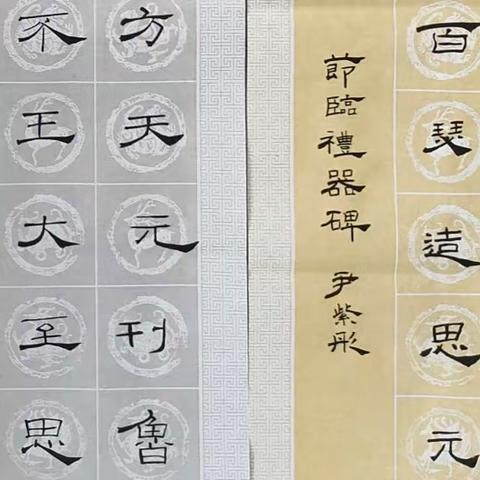 百瑟造思元
節臨禮器碑 尹紫彤
方天元刊魯
不王大至思